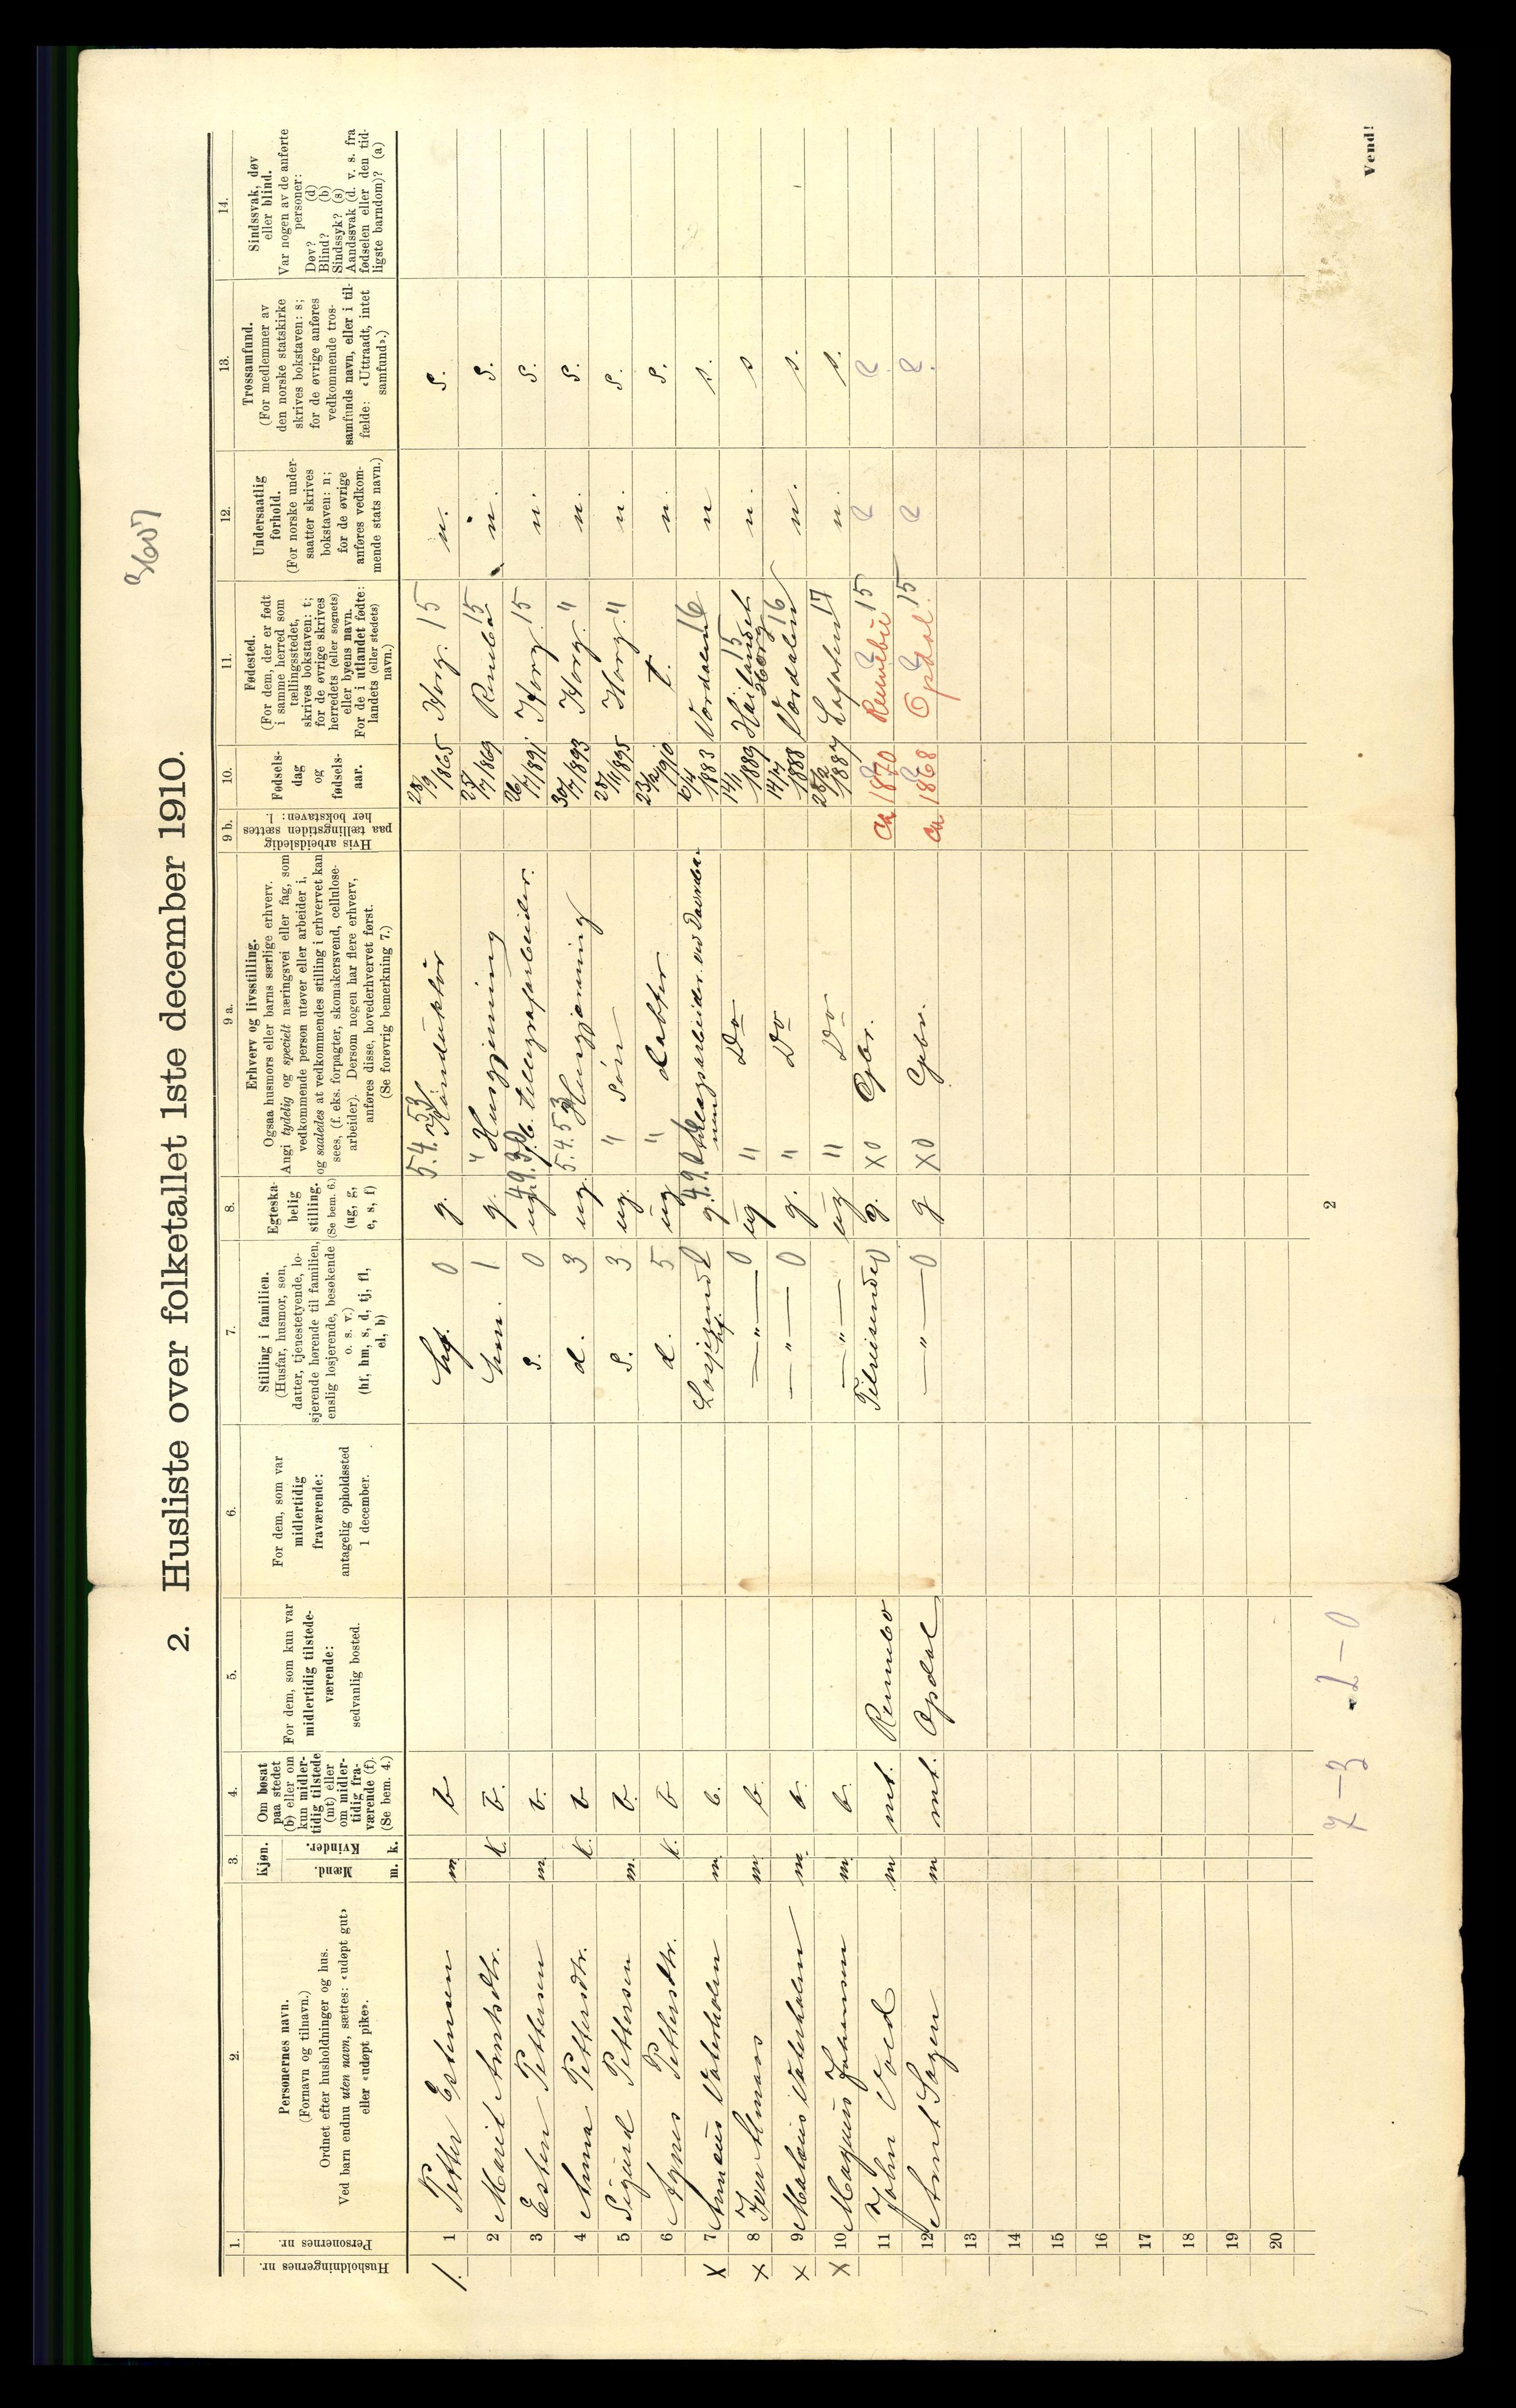 3607
2. Husliste over folketallet 1ste december 1910.
Husholdningernes nr.
1.
Personernes nr.
2.
Personernes navn.
(Fornavn og tilnavn.)
Ordnet efter husholdninger og hus.
Ved barn endnu uten navn, sættes: «udøpt gut»
eller «udøpt pike».
3.
Kjøn.
Mænd.
Kvinder.
m. k.
4.
Om bosat
paa stedet
(b) eller om
kun midler-
tidig tilstede
(mt) eller
om midler-
tidig fra-
værende (f).
(Se bem. 4.)
5.
For dem, som kun var
midlertidig tilstede-
værende:
sedvanlig bosted.
6.
For dem, som var
midlertidig
fraværende:
antagelig opholdssted
1 december.
7.
Stilling i familien.
(Husfar, husmor, søn,
datter, tjenestetyende, lo-
sjerende hørende til familien,
enslig losjerende, besøkende
o. s. v.)
(hf, hm, s, d, tj, fl,
el, b)
8.
Egteska-
belig
stilling.
(Se bem. 6.)
(ug, g,
e, s, f)
9 a.
Erhverv og livsstilling.
Ogsaa husmors eller barns særlige erhverv.
Angi tydelig og specielt næringsvei eller fag, som
vedkommende person utøver eller arbeider i,
og saaledes at vedkommendes stilling i erhvervet kan
sees, (f. eks. forpagter, skomakersvend, cellulose-
arbeider). Dersom nogen har flere erhverv,
anføres disse, hovederhvervet først.
(Se forøvrig bemerkning 7.)
9 b.
Hvis arbeidsledig
paa tællingstiden sættes
her bokstaven: l
10.
Fødsels-
dag
og
fødsels-
aar.
11.
Fødested.
(For dem, der er født
i samme herred som
tællingsstedet,
skrives bokstaven: t;
for de øvrige skrives
herredets (eller sognets)
eller byens navn.
For de i utlandet fødte:
landets (eller stedets)
navn.)
12.
Undersaatlig
forhold.
(For norske under-
saatter skrives
bokstaven: n;
for de øvrige
anføres vedkom-
mende stats navn.)
13.
Trossamfund.
(For medlemmer av
den norske statskirke
skrives bokstaven: s;
for de øvrige anføres
vedkommende tros-
samfunds navn, eller i til-
fælde: «Uttraadt, intet
samfund».)
14.
Sindssvak, døv
eller blind.
Var nogen av de anførte
personer:
Døv? (d)
Blind? (b)
Sindssyk? (s)
Aandssvak (d. v. s. fra
fødselen eller den tid-
ligste barndom)? (a)
1. 1 Petter Estensen m b hf. 0 g. 5.4.53 Konduktör 28/9 1865 Horg. 15 n. s.
2 Marit Arntsdtr. k. b. hm. 1 g. " Husgjerning 25/7 1869 Rennebu 15 n. s.
3 Esten Pettersen m b. s. 0 ug. telegrafarbeider. 26/7 1891 Horg. 15 n. s.
4 Anna Pettersdtr. k. b d. 3 ug. 5.4.53 Husgjerning 30/7 1893 Horg. " n. s.
5 Sigurd Pettersen m. b. s. 3 ug. " sön 25/11 1895 Horg. " n. s.
6 Agnes Pettersdtr. k. b d. 5 ug " datter 23/12 1910 t. n. s.
X 7 Vaterholm m. b. Losjerende 0 g. 1883 Vordalen 16 n s.
X 8 Iver m. b. — " — 0 ug " Do 14/1 1889 15 Horg n. s
X 9 Vaterholm m. b. — " — 0 g. " Do 14/7 1888 Vordalen 16 n. s.
X 10 Magnus Johansen m. b. — " — ug " Do 1887 17 n. s.
11 John Voed m mt. Rennebo Tilreisende 0 g. X0 Gbr. ca 1870 Rennebu 15
12 Arnt Sagen m mt. Opdal — " — 0 g X0 Gbr. ca 1868 Opdal 15
13
14
15
16
17
18
19
20
7—3 2—0
2
Vend!